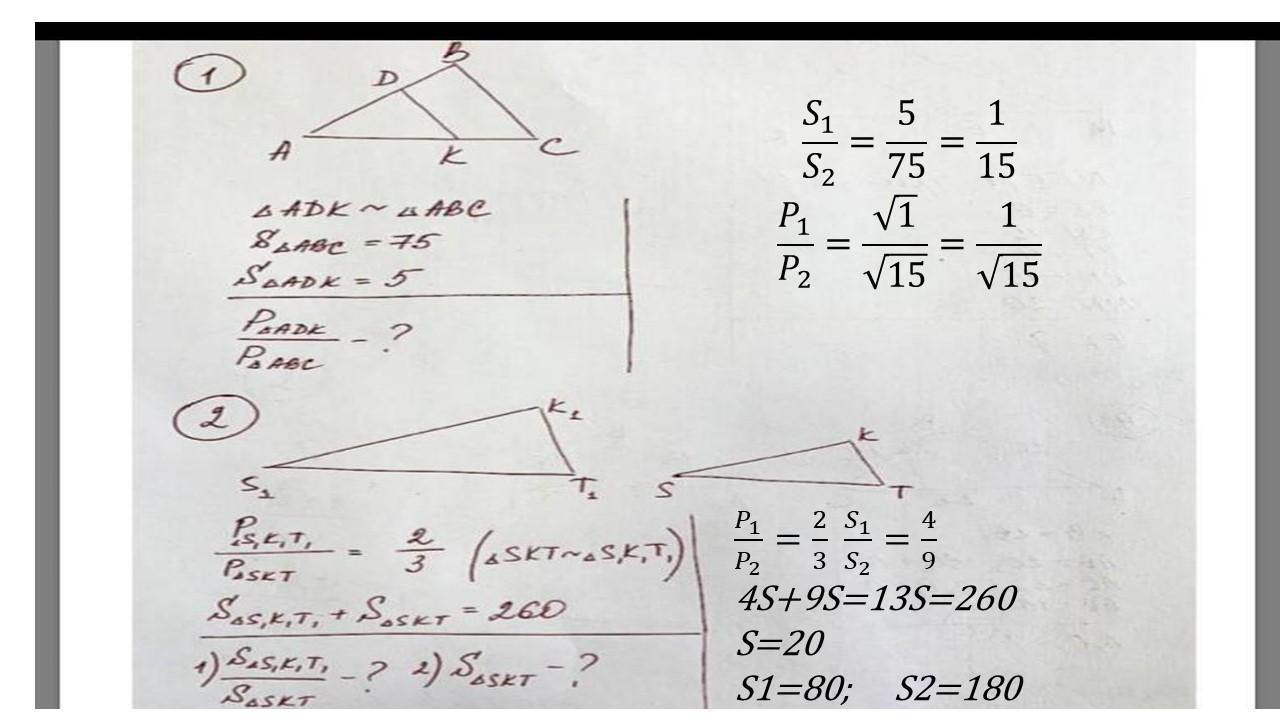 1
B
D
A K C
△ADK ~ △ABC
S△ABC = 75
S△ADK = 5
P△ADK / P△ABC - ?
S₁/S₂ = 5/75 = 1/15
P₁/P₂ = √1/√15 = 1/√15
2
K₁
S₁ T₁
K
S T
P△S₁K₁T₁ / P△SKT = 2/3 (△SKT~△S₁K₁T₁)
S△S₁K₁T₁ + S△SKT = 260
1) S△S₁K₁T₁ / S△SKT - ? 2) S△SKT - ?
P₁/P₂ = 2/3 S₁/S₂ = 4/9
4S+9S=13S=260
S=20
S1=80; S2=180